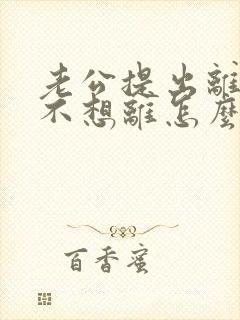 老公提出離
不想離怎麼
百香蜜